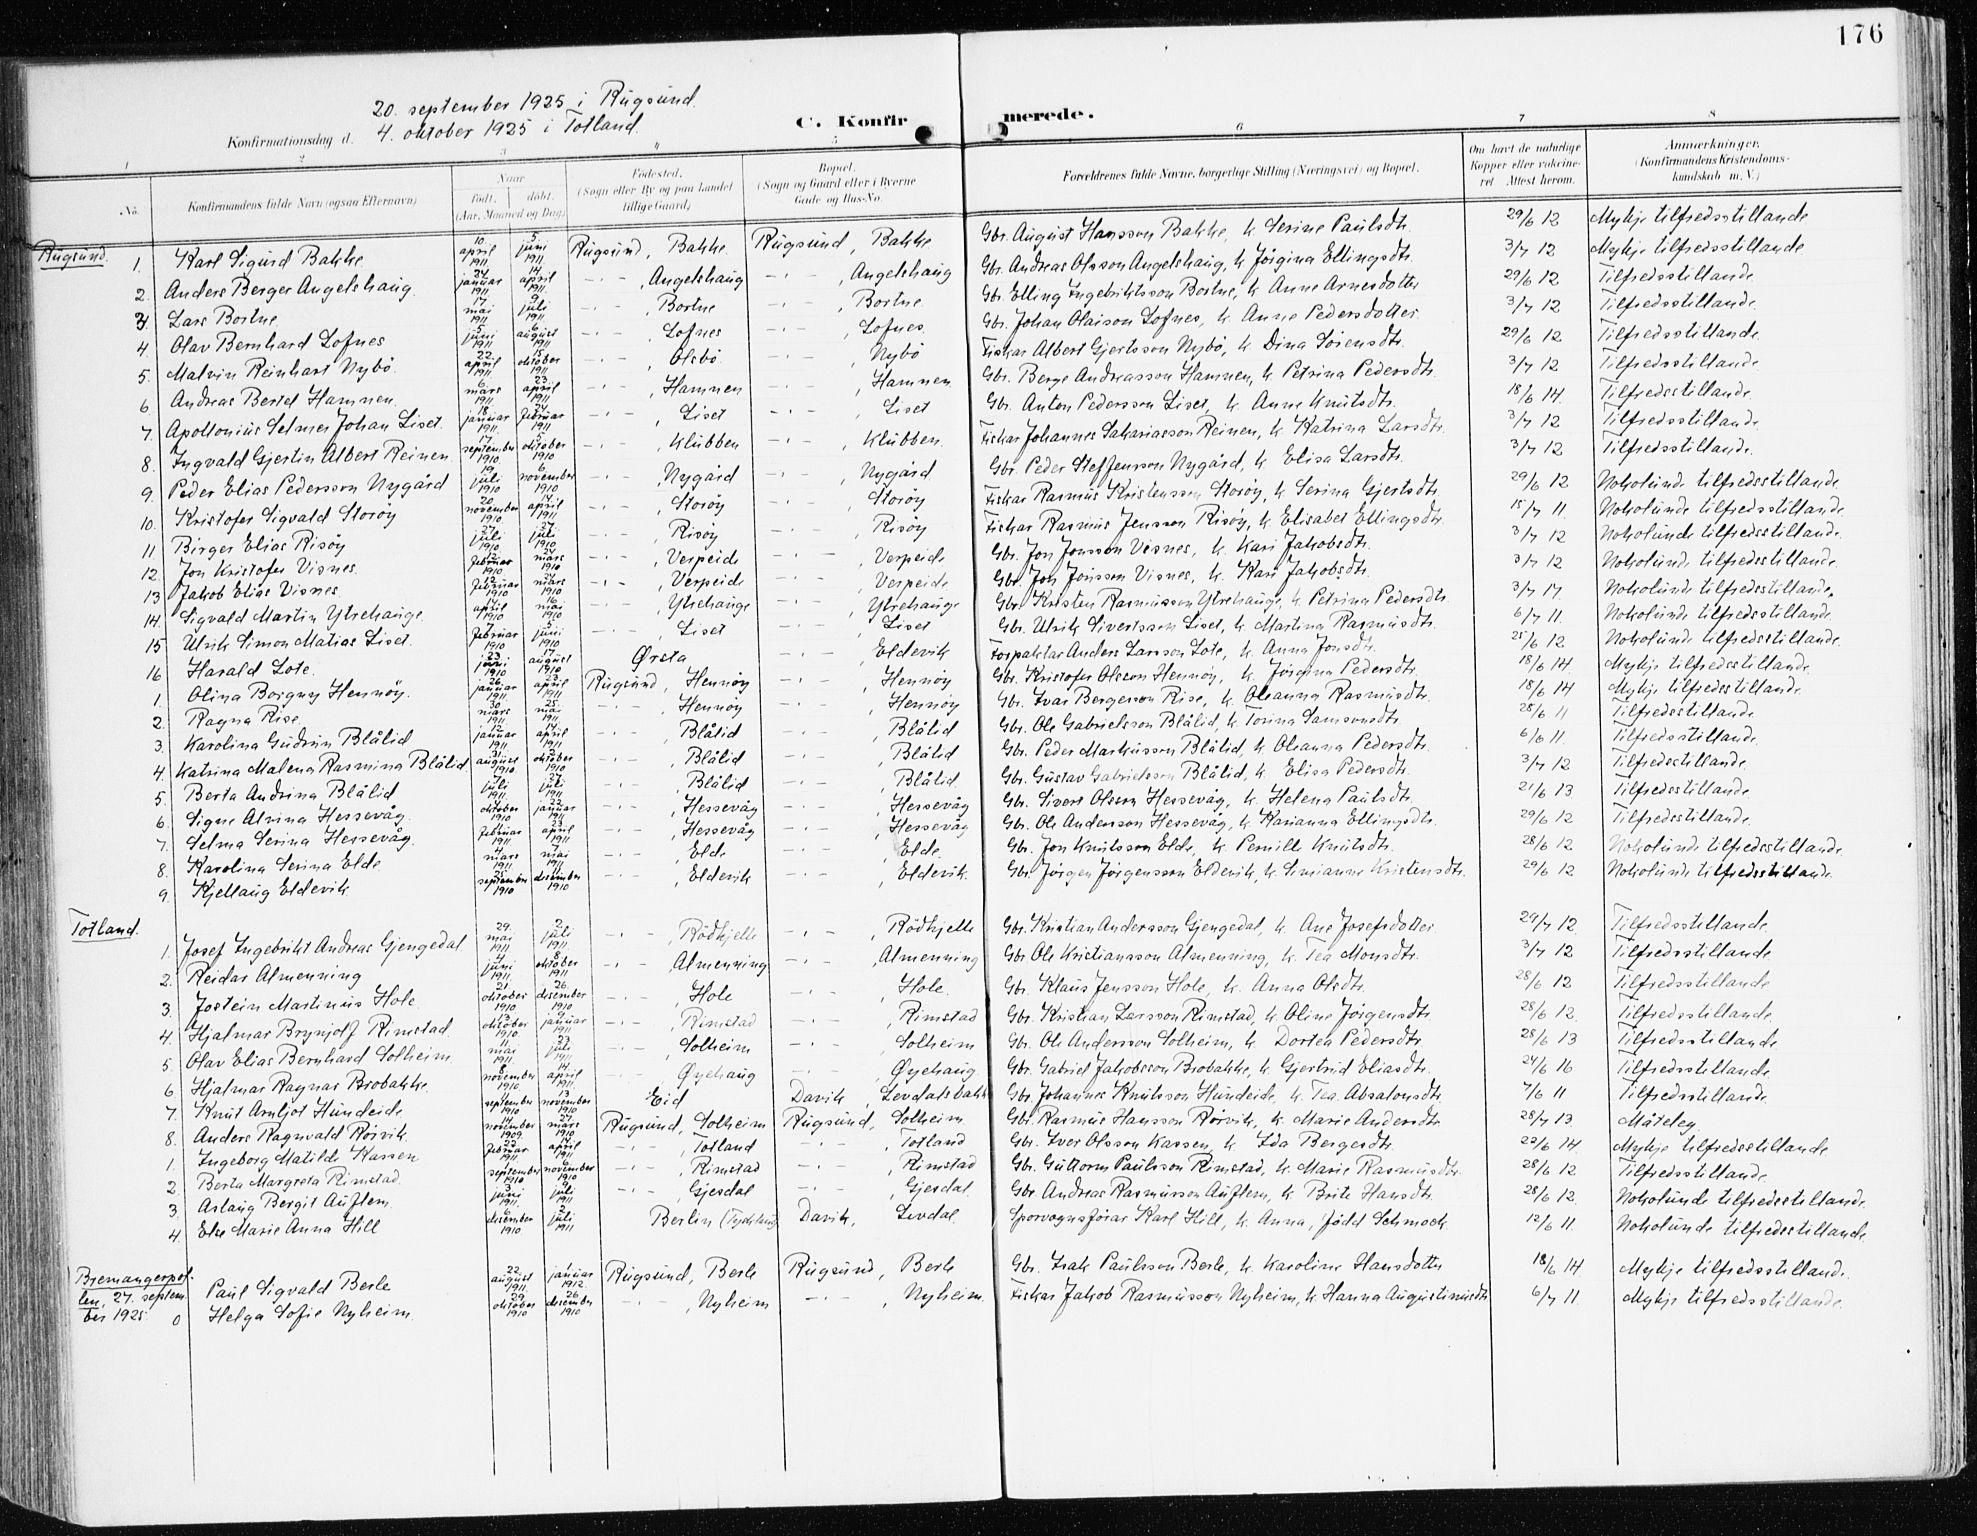 176
20. september 1925 i Rugsund.
Konfirmationsdag d. 4. oktober 1925 i Totland.
C. Konfirmerede.
1 2 3 4 5 6 7 8
No. Konfirmandens fulde Navn (ogsaa Efternavn) Naar født. døbt. (Aar, Maaned og Dag) Fødested. (Sogn eller By og paa Landet tillige Gaard) Bopæl. (Sogn og Gaard eller i Byerne Gade og Hus-No. Forældrenes fulde Navne, borgerlige Stilling (Næringsvei) og Bopæl. Om havt de naturlige Kopper eller vakcineret. Attest herom. Anmærkninger. (Konfirmandens Kristendomskundskab m. V.)
Rugsund.
1. Karl Sigurd Bakke 10 april 1911 5 juni 1911 Rugsund, Bakke Rugsund, Bakke Gbr. August Hansson Bakke, k. Serine Paulsdtr. 29/6 12 Mykje tilfredsstillande
2. Anders Berger Angelshaug 24 januar 1911 14 april 1911 -"- , Angelshaug -"- , Angelshaug Gbr. Andreas Olsson Angelshaug, k. Jørgina Ellingsdtr. 3/7 12 Mykje tilfredsstillande
3. Lars Bortne 17 mai 1911 9 juli 1911 -"- , Bortne -"- , Bortne Gbr. Elling Ingebriktsson Bortne, k. Anne Arnesdotter 29/6 12 Tilfredsstillande.
4. Olav Bernhard Lofnes 5 juni 1911 6 august 1911 -"- , Lofnes -"- , Lofnes Gbr. Johan Olaison Lofnes, k. Anne Pedersdotter 3/7 12 Tilfredsstillande.
5. Malvin Reinhart Nybö 22 april 1911 15 oktober 1911 -"- , Olsbö -"- , Nybö Fiskar Albert Gjertsson Nybö, k. Dina Sörensdtr. 29/6 12 Tilfredsstillande
6. Andreas Bertel Hamnen 6 mars 1911 23 april 1911 -"- , Hamnen -"- , Hamnen Gbr. Berge Andreasson Hamnen, k. Petrina Pedersdtr. 3/7 12 Tilfredsstillande
7. Apollonius Selmer Johan Liset 18 januar 1911 24 februar 1911 -"- , Liset -"- , Liset Gbr. Anton Pedersson Liset, k. Anne Knutsdtr. 18/6 14 Tilfredsstillande
8. Ingvald Gjertin Albert Reinen 17 september 1910 oktober 1910 -"- , Klubben -"- , Klubben Fiskar Johannes Sakariasson Reinen, k. Katrina Larsdtr. 3/7 12 Tilfredsstillande.
9. Peder Elias Pedersson Nygård 19 juli 1910 6 november 1910 -"- , Nygård -"- , Nygård Gbr. Peder Steffensson Nygård, k. Elisa Larsdtr. 3/7 12 Tilfredsstillande.
10. Kristofer Sigvald Storöy 20 november 1910 14 april 1911 -"- , Storöy -"- , Storöy Fiskar Rasmus Kristensson Storöy, k. Serina Gjertsdtr. 29/6 12 Nokolunde tilfredsstillande
11 Birger Elias Risöy 27 juli 1910 27 juli 1910 -"- , Risöy -"- , Risöy Fiskar Rasmus Jensson Risöy, k. Elisabet Ellingsdtr. 15/7 11 Nokolunde tilfredsstillande.
12 Jon Kristofer Visnes 12 februar 1910 24 mars 1910 -"- , Verpeide -"- , Verpeide Gbr. Jon Jonsson Visnes, k. Kari Jakobsdtr. 3/7 12 Nokolunde tilfredsstillande.
13 Jakob Elias Visnes 12 februar 1910 24 mars 1910 -"- , Verpeide -"- , Verpeide Gbr. Jon Jonsson Visnes, k. Kari Jakobsdtr. 3/7 12 Nokolunde tilfredsstillande.
14. Sigvald Martin Ytrehauge 14 april 1910 16 mai 1910 -"- , Ytrehauge -"- , Ytrehauge Gbr. Kristen Rasmusson Ytrehauge, k. Petrina Pedersdtr. 3/7 17 Nokolunde tilfredsstillande.
15 Ulrik Simon Matias Liset. 7 februar 1910 5 juni 1910 -"- , Liset -"- , Liset Gbr. Ulrik Sivertsson Liset, k. Martina Rasmusdtr. 6/7 11 Nokolunde tilfredsstillande.
16 Harald Lote. 23 juni 1910 17 august 1910 Ørsta -"- , Eldevik Forpaktar Anders Larsson Lote, k. Anna Jonsdtr. 25/6 12 Nokolunde tilfredsstillande.
1. Olina Borgny Hennöy. 26 januar 1911 23 april 1911 Rugsund, Hennöy -"- , Hennöy Gbr. Kristofer Olsson Hennöy, k. Jörgina Pedersdtr. 18/6 14 Mykje tilfredsstillande.
2. Ragna Rise. 30 mars 1911 25 mai 1911 -"- , Hennöy -"- , Hennöy Gbr. Ivar Bergerson Rise, k. Oleanna Rasmusdtr. 18/6 14 Mykje tilfredsstillande.
3. Karolina Gudrun Blålid 12 januar 1911 14 april 1911 -"- , Blålid -"- , Blålid Gbr. Ole Gabrielsson Blålid, k. Torina Samsonsdtr. 28/6 11 Tilfredsstillande
4. Katrina Malena Rasmina Blålid 31 august 1910 2 oktober 1910 -"- , Blålid -"- , Blålid Gbr. Peder Markusson Blålid, k. Oleanna Pedersdtr. 6/6 11. Tilfredsstillande.
5. Berta Andrina Blålid juli 1911 27 juli 1911 -"- , Blålid -"- , Blålid Gbr. Gustav Gabrielsson Blålid, k. Elisa Pedersdtr. 3/7 12 Tilfredsstillande.
6. Signe Alvina Hessevåg oktober 1910 22 januar 1911 -"- , Hessevåg -"- , Hessevåg Gbr. Sivert Olsson Hessevåg, k. Helena Paulsdtr. 21/6 13 Tilfredsstillande
7. Selma Serina Hessevåg. 11 februar 1911 23 april 1911 -"- , Hessevåg -"- , Hessevåg Gbr. Ole Andersson Hessevåg, k. Marianna Ellingsdtr. 29/6 12 Tilfredsstillande.
8. Karolina Serina Elde 4 mars 1911 7 mai 1911 -"- , Elde -"- , Elde. Gbr. Jon Knutsson Elde, k. Pernille Knutsdtr. 28/6 12 Nokolunde tilfredsstillande
9. Kjellaug Eldevik 25 september 1910 desember 1910 -"- , Eldevik -"- , Eldevik Gbr. Jørgen Jørgensson Eldevik, k. Simianne Kristensdtr. 29/6 12 Nokolunde tilfredsstillande.
Totland.
1. Josef Ingebrikt Andreas Gjengedal 29. mai 1911 2 juli 1911. -"- , Rödkjelle -"- , Rödkjelle Gbr. Kristian Andersson Gjengedal, k. Ane Josefsdotter 29/7 12 Tilfredsstillande.
2. Reidar Almenning 4 juni 1911 8 oktober 1911 -"- , Almenning -"- , Almenning Gbr Ole Kristiansson Almenning, k. Tea Monsdtr. 3/7 12 Tilfredsstillande
3. Jostein Martinus Hole 21. oktober 1910 26. desember 1910 -"- , Hole -"- , Hole. Gbr. Klaus Jensson Hole, k. Anna Olsdtr. 28/6 12 Tilfredsstillande
4. Hjalmar Brynjolf Rimstad. 13 oktober 1910 januar 1911 -"- , Rimstad -"- , Rimstad Gbr. Kristian Larsson Rimstad, k. Oline Jørgensdtr. 28/6 12. Tilfredsstillande.
5. Olav Elias Bernhard Solheim 11. mai 1911 23 juli 1911 -"- , Solheim -"- , Solheim Gbr. Ole Andersson Solheim, k. Dortea Pedersdtr 28/6 13 Tilfredsstillande
6 Hjalmar Ragnar Brobakke 8 november 1910 14 april 1911. -"- , Øyehaug -"- , Øyehaug Gbr. Gabriel Jakobsson Brobakke, k. Gjertrud Eliasdtr. 24/6 16 Tilfredsstillande.
7. Knut Arnljot Hundeide. september 1910 13 november 1910 Eid Davik, Levdalsbakk Gbr. Johannes Knutsson Hundeide, k. Tea Absalonsdtr. 7/6 11 Tilfredsstillande.
8. Anders Ragnvald Rörvik 14 november 1909. 27. mars 1910 Rugsund, Solheim Rugsund, Solheim Gbr. Rasmus Hansson Rörvik, k. Marie Andersdtr 28/7 13. Måteleg.
1. Ingeborg Matilde Kassen 22. februar 1911 14 april 1911 -"- , Totland -"- , Totland Gbr. Iver Olsson Kassen, k. Ida Bergesdtr. 22/6 14. Mykje tilfredsstillande
2. Berta Margreta Rimstad. september 1910 6. november 1910 -"- , Rimstad -"- , Rimstad Gbr. Guttorm Paulsson Rimstad, k. Marie Rasmusdtr. 28/6 12 Tilfredsstillande.
3. Aslaug Bergit Auflem. 3 juni 1911 9 juli 1911 -"- , Gjesdal -"- , Gjesdal. Gbr. Andreas Rasmusson Auflem, k. Brite Hansdtr. 28/6 12. Nokolunde tilfredsstillande.
4. Else Marie Anna Hill 6. desember 1910 2. juli 1911 Berlin (Tyskland) Davik, Levdal. Sporvognsförar Karl Hill, k. Anna, född Schmock. 12/6 11. Nokolunde tilfredsstillande
Bremangerpollen, 27. september 1925
Paul Sigvald Berle 22. august 1911. 1 januar 1912. Rugsund, Berle Rugsund, Berle Gbr. Isak Paulsson Berle, k. Karoline Hansdotter 18/6 14. Mykje tilfredsstillande.
0 Helga Sofie Nyheim. 29. oktober 1910 26 desember 1910 -"- , Nyheim -"- , Nyheim. Fiskar Jakob Rasmusson Nyheim, k. Hanna Augustinusdtr 6/7 11. Mykje tilfredsstillande.